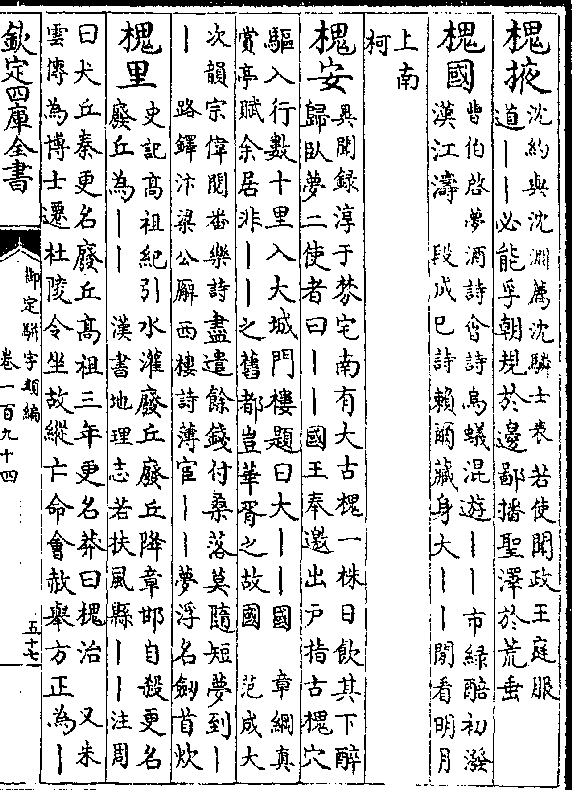 槐掖
沈約與沈淵薦沈驎士表若使聞政王庭服
道丨丨必能孚朝規於邊鄙播聖澤於荒垂
槐國
曹伯啓夢酒詩會詩烏蟻混遊丨丨市緑醅初潑
漢江濤 段成巳詩賴爾藏身大丨丨閒看明月
上南
柯
槐安
異聞録淳于棼宅南有大古槐一株日飲其下醉
歸臥夢二使者曰丨丨國王奉邀出戸指古槐穴
驅入行數十里入大城門樓題曰大丨丨國 章綱真
賞亭賦余居非丨丨之舊都豈華胥之故國 范成大
次韻宗偉閱番樂詩盡遣餘錢付桑落莫隨短夢到丨
丨 路鐸汴梁公廨西樓詩薄宦丨丨夢浮名劔首炊
槐里
史記高祖紀引水灌廢丘廢丘降章邯自殺更名
廢丘為丨丨 漢書地理志若扶風縣丨丨注周
曰犬丘秦更名廢丘高祖三年更名莽曰槐治 又朱
雲傳為博士遷杜陵令坐故縱亡命會赦舉方正為丨
欽定四庫全書
御定駢字類編
卷一百九十四
五十七